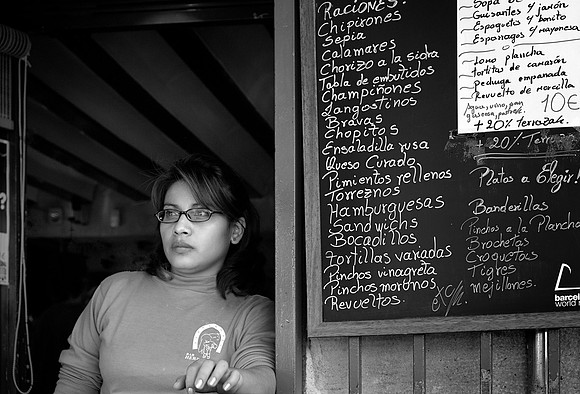 RACIONES:
Chipirones
Sepia
Calamares
Chorizo a la sidra
Tabla de embutidos
Champiñones
Langostinos
Bravas
Chopitos
Ensaladilla rusa
Queso Curado
Pimientos rellenos
Torreznos
Hamburguesas
Sandwichs
Bocadillos
Tortillas variadas
Pinchos vinagreta
Pinchos morunos
Revueltos.
Sopa de
Guisantes y jamón
Espagueto y bonito
Esparragos y mayonesa
Lomo plancha
tortitas de camarón
Pechuga empanada
Revuelto de morcilla
Agua, vino, pan
10€
+ 20% Terraza.
+ 20% Terraza
Platos a Elegir!
Banderillas
Pinchos a la Plancha
Brochetas
Croquetas
Tigres
mejillones.
barcel
world r
?